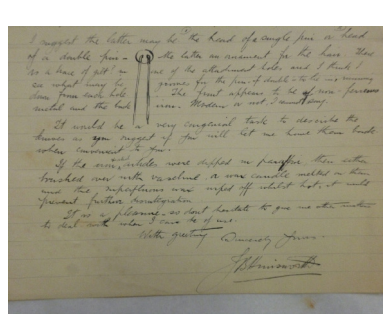 I suggest the latter may be the head of a single pin or head
of a double pin - the latter an ornament for the hair. There
is a trace of gilt in one of the attachment holes and I think I
can see what may be grooves for the pin - if double - to the
down from each hole. The front appears to be of non-ferrous
metal and the back iron. Modern or not, I cannot say.
It would be a very congenial task to describe the
as you suggest if you will let me have them back
when convenient to you.
If the iron articles were dipped in paraffin then either
brushed over with vaseline or a wax candle melted on them
and the superfluous wax wiped off whilst hot, it would
prevent further disintegration.
It is a pleasure - so don't hesitate to give me other matters
to deal with when I can be of use.
With greetings
Sincerely Yours